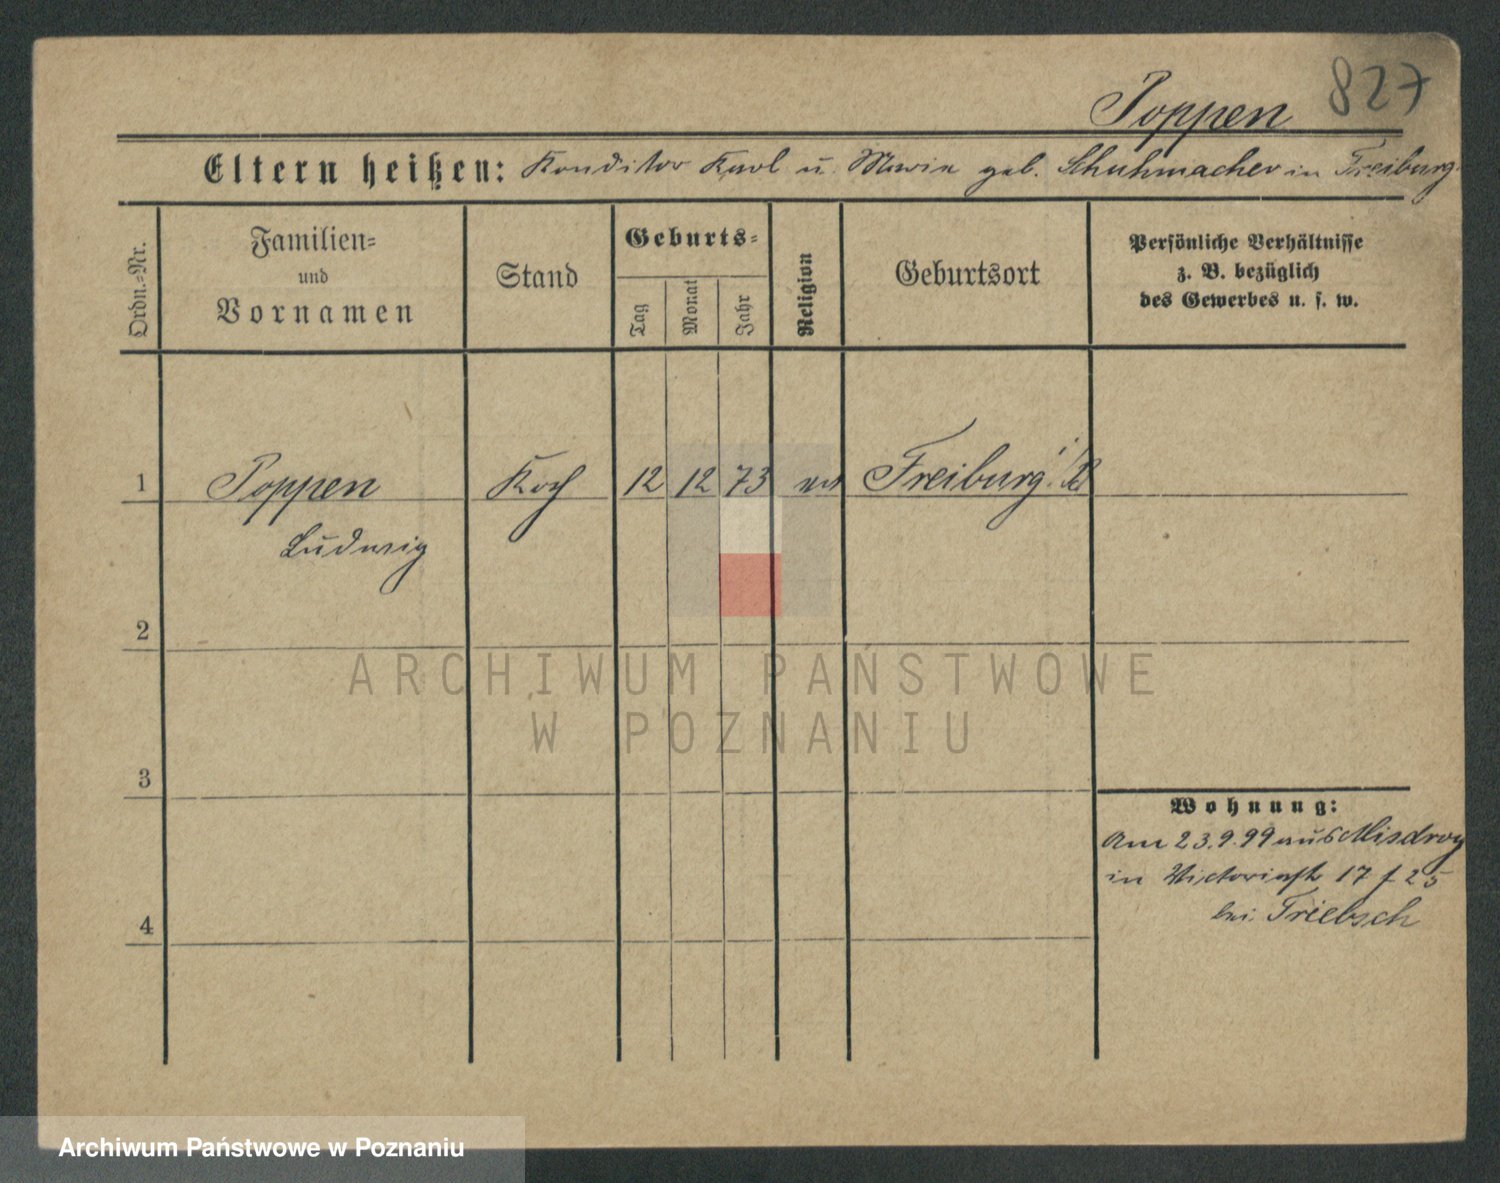 827
Poppen
Eltern heißen: Konditor Karl u. Marie geb. Schuhmacher in Freiburg
Ordn.-Nr.
Familien- und Vornamen
Stand
Geburts-
Tag
Monat
Jahr
Religion
Geburtsort
Persönliche Verhältnisse
z. B. bezüglich
des Gewerbes u. s. w.
1 Poppen Koch 12 12 73 Freiburg i/B
Ludwig
2
ARCHIWUM PAŃSTWOWE
W POZNANIU
3
Wohnung:
Am 23.9.99 aus Misdroy
in Victoriastr 17 f 25
bei Triebsch
4
Archiwum Państwowe w Poznaniu